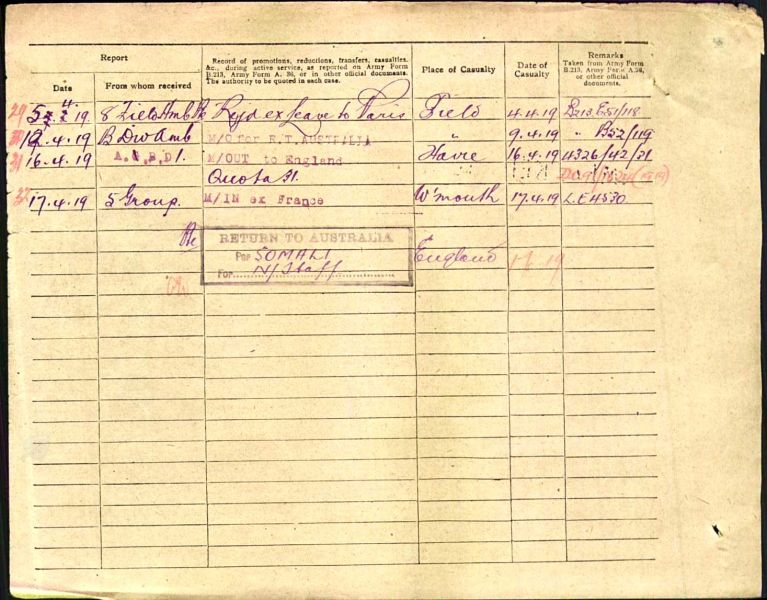 Report
Record of promotions, reductions, transfers, casualties,
&c., during active service, as reported on Army Form
B.213, Army Form A. 36, or in other official documents.
The authority to be quoted in each case.
Place of Casualty
Date of
Casualty
Remarks
Taken from Army Form
B.213, Army Form A.36,
or other official
documents.
Date
From whom received
29 19 8 Field Amb Rejd ex leave to Paris Field 4.4.19 B213
.4.19 B Amb M/O for R.T. AUSTRALIA " 9.4.19 " B52/119
31 16.4.19 M/OUT to England Havre 16.4.19 4326/42/31
Quota 31.
32 17.4.19 5 Group. M/IN ex France W'mouth 17.4.19 L.E4570
RETURN TO AUSTRALIA
Per SOMALI
For N/Staff
England 19